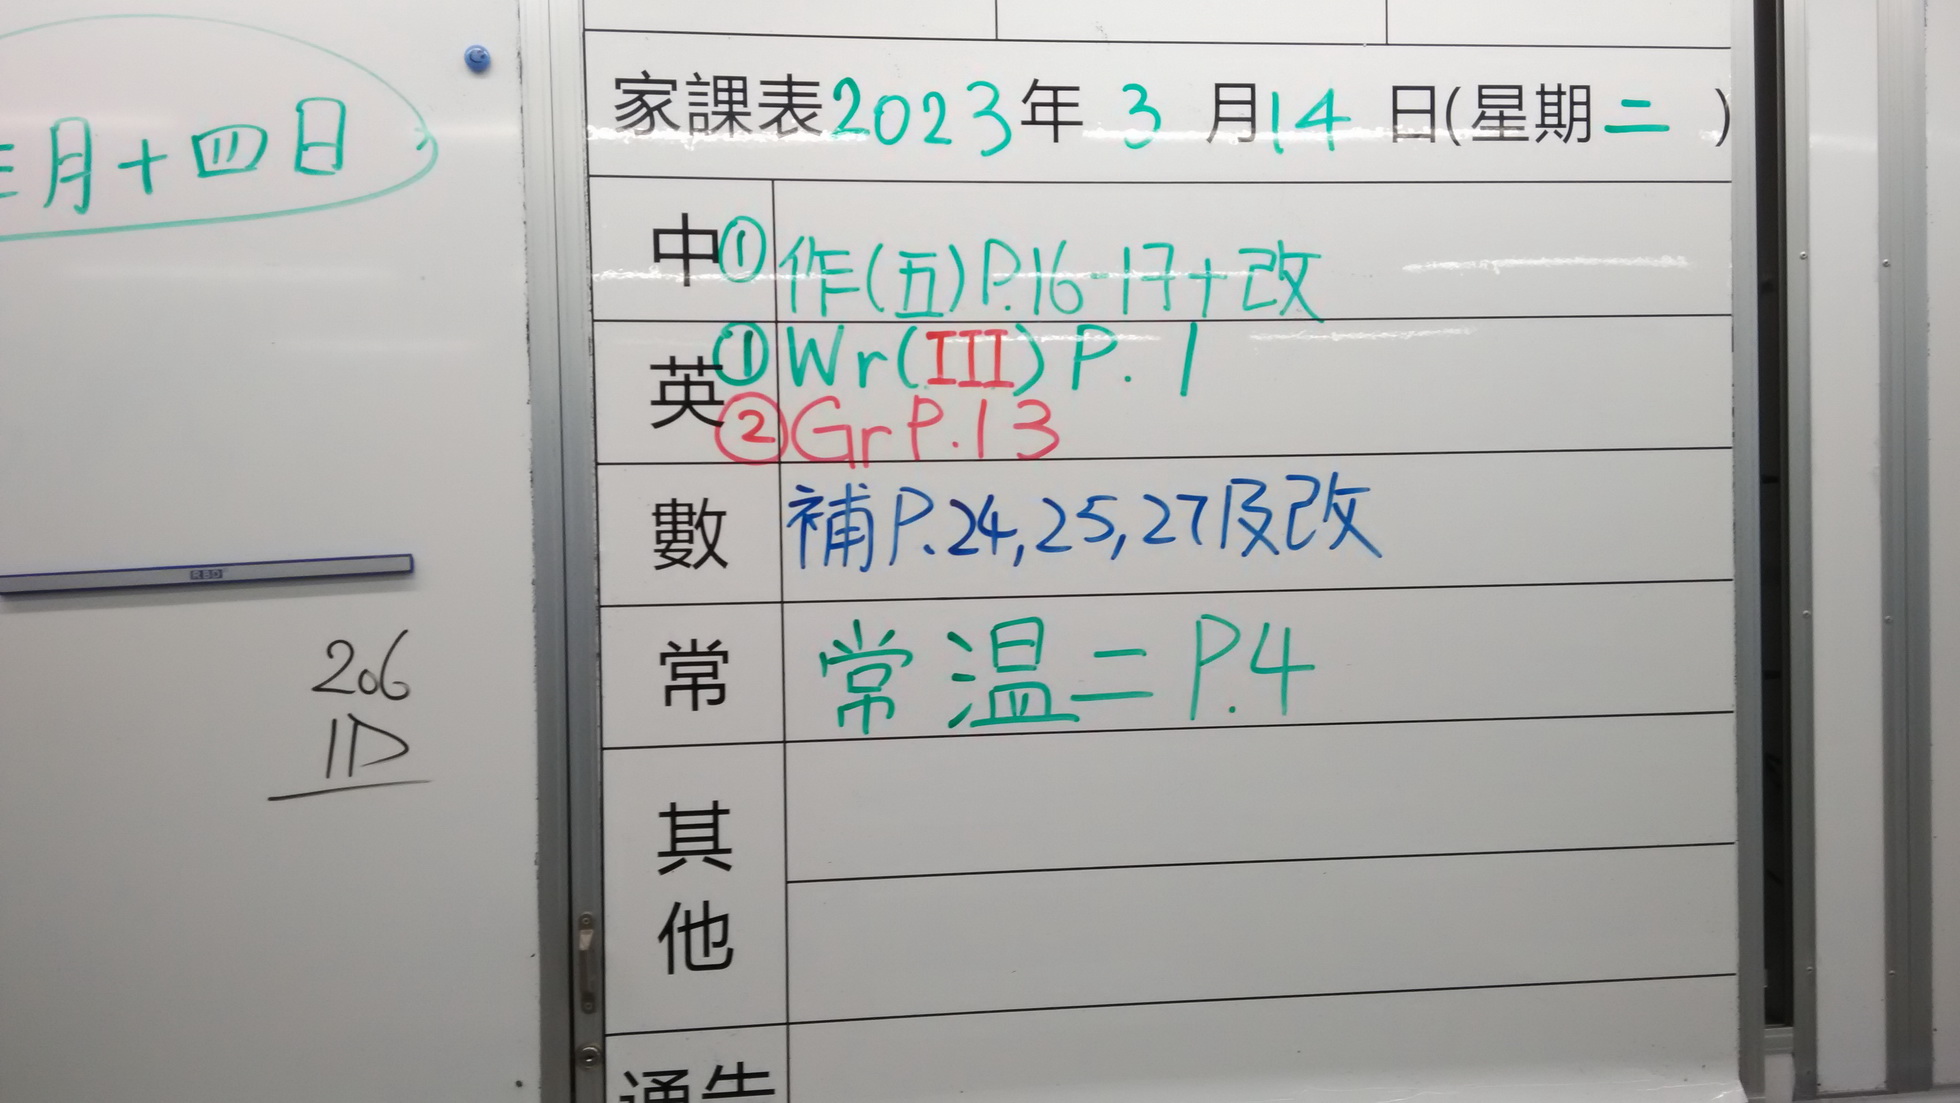 月十四日
RBD
206
1D
家課表2023年 3 月14 日(星期二 )
中① 作(五)P.16-17+改
英①Wr(III) P. 1
②Gr P.13
數 補P.24,25,27及改
常 常 温二 P.4
其他
通告